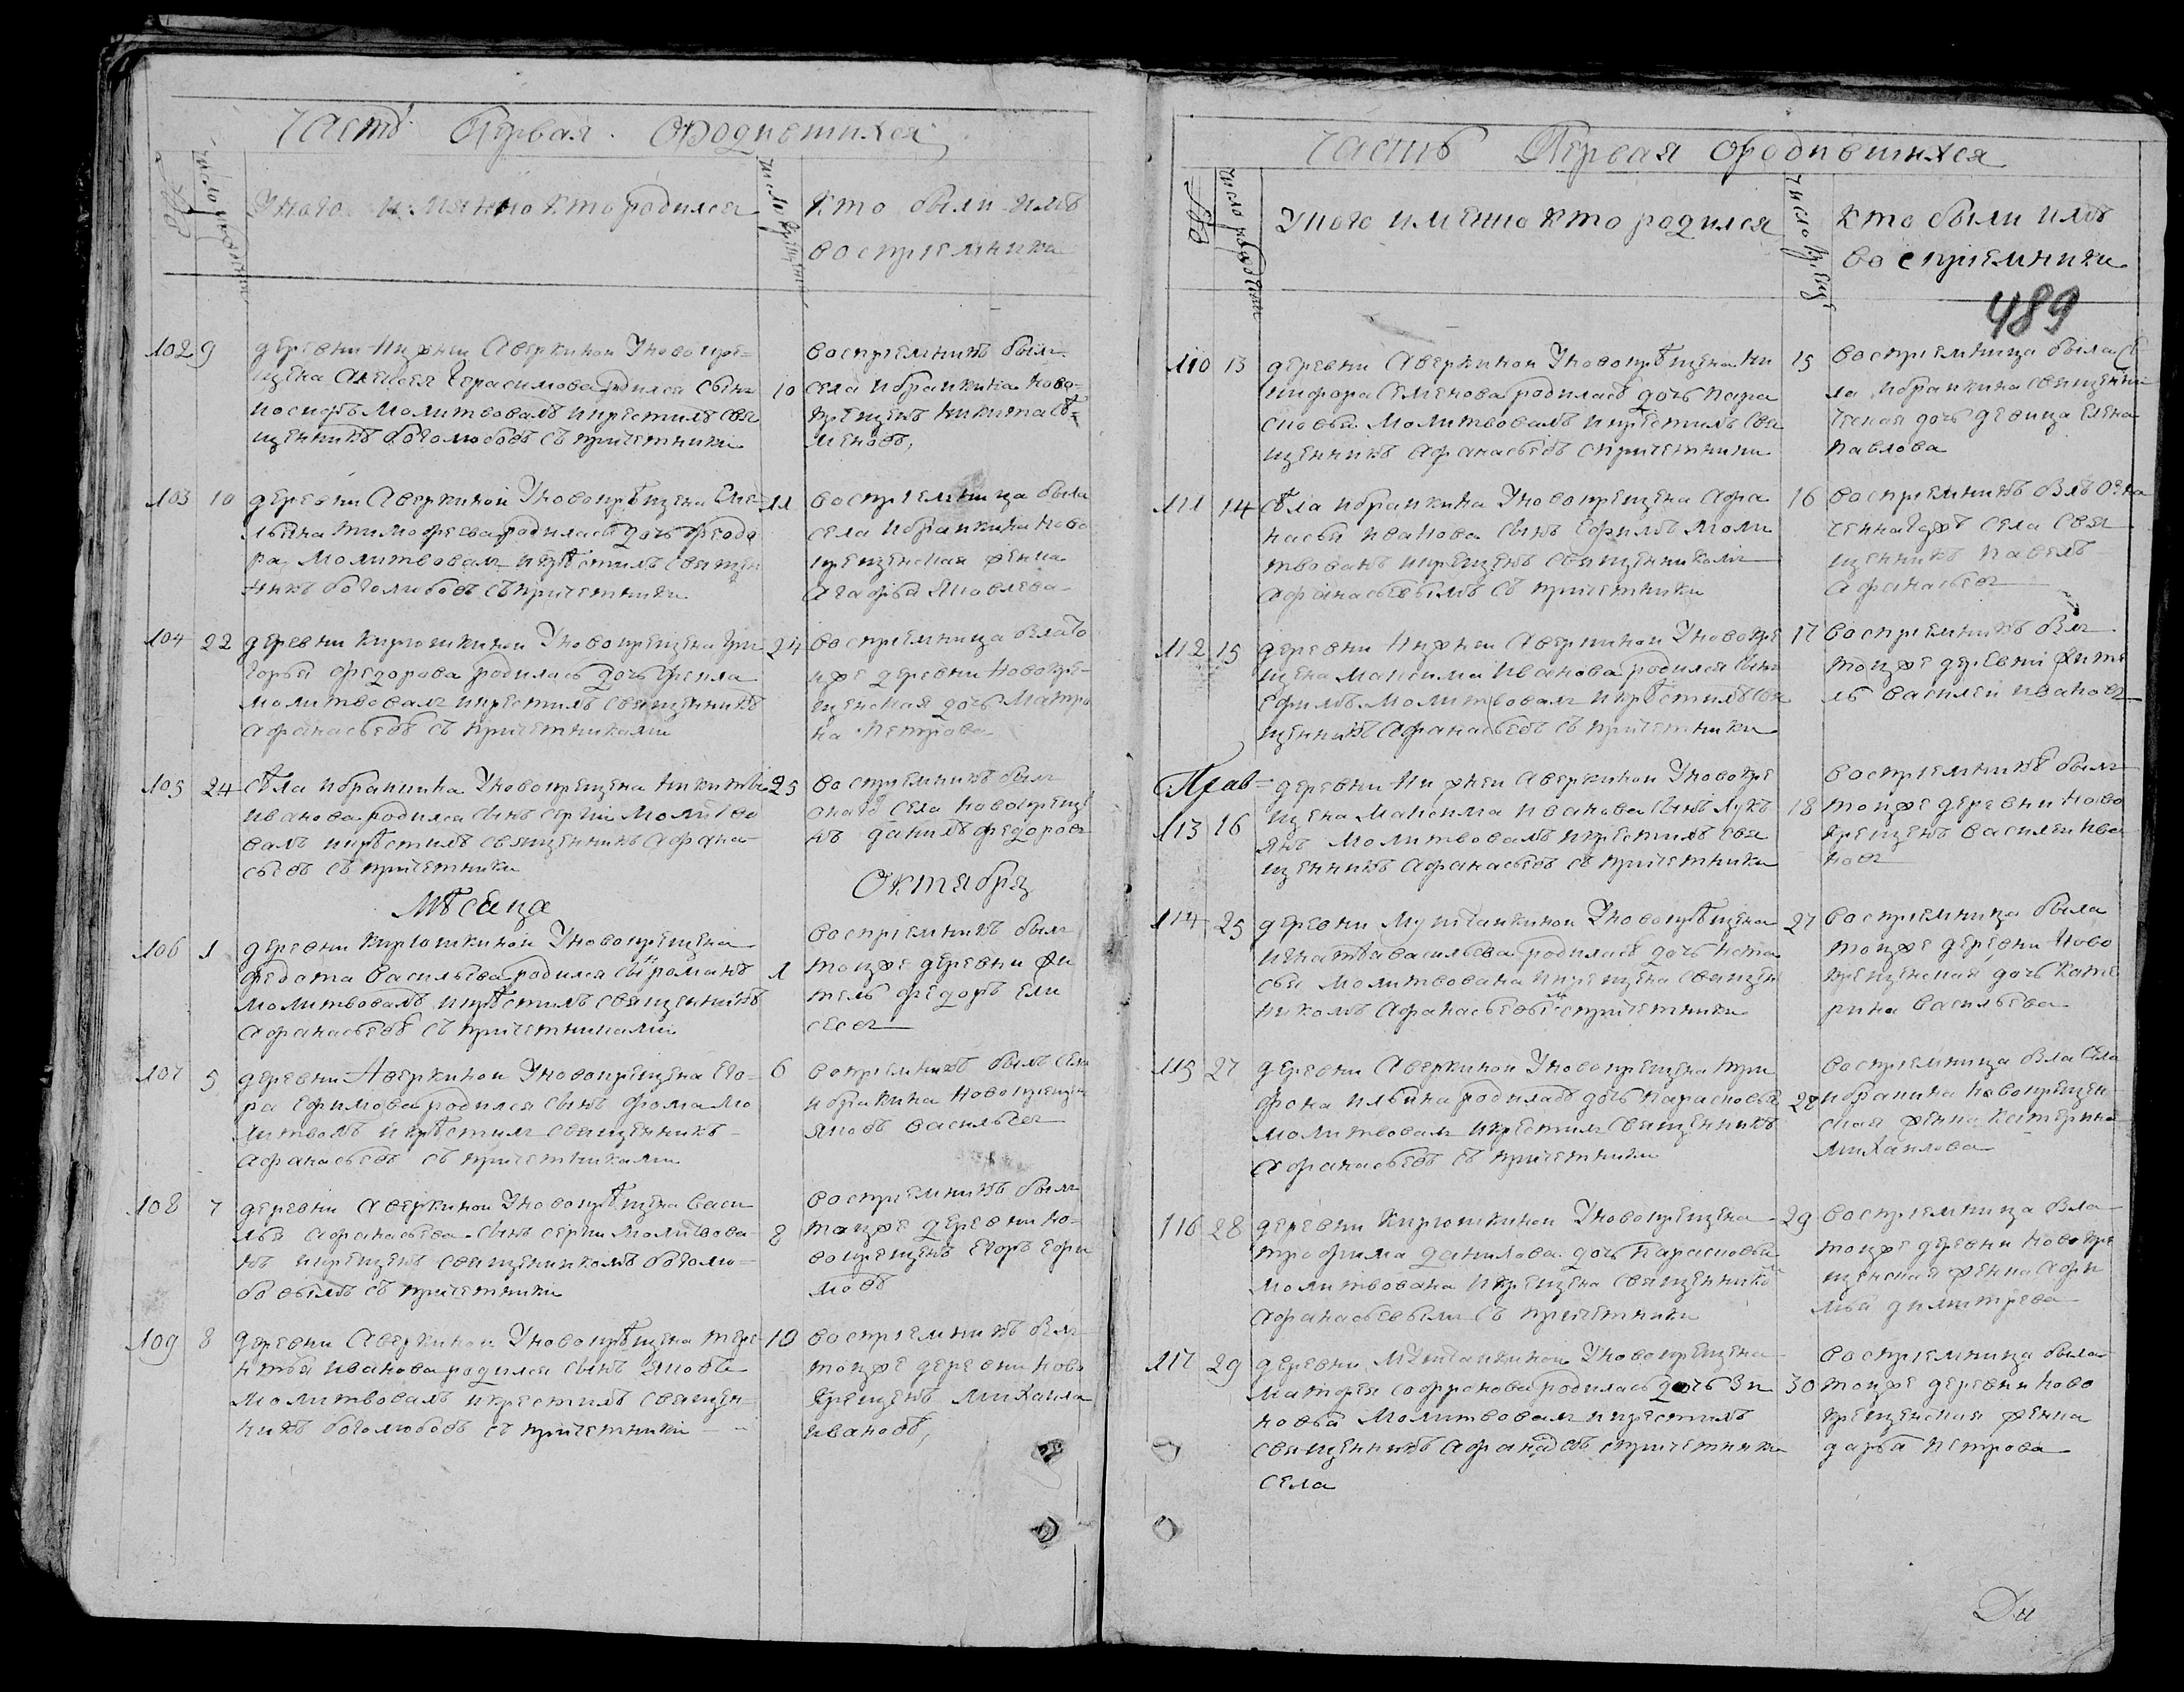 Часть Первая ородившихся
№
число рождения
Укого имянно кто родился
число крещения
кто были имъ
воспрiемники
102 9 деревни Нижнеи Аверкинои Уновокре-
щена Алексея Герасимова родился сынъ
иосифъ молитвовалъ икрестилъ свя
щенникъ боголюбовъ съ причетники
10
воспрiемникъ былъ
села ибраикина ново-
крещенъ никита се-
меновъ,
103 10 деревни Аверкиной Уновокрѣщена Еме
льяна тимофеева родилась дочь феодо
ра, молитвовалъ икрѣстилъ священ
никъ боголюбовъ съ причетники
11 воспрiемница была
села ибраикина ново
крещенская женка
Агафья Яковлева
104 22 деревни кирюшкинои Уновокрещена гри
горья федорова родилась дочь фекла
молитвовалъ икрестилъ священникъ
афанасьевъ съ причетниками
24 воспрiемница была то
иже деревни новокре-
щенская дочь матро
на Петрова
105 24 сѣла ибраикина Уновокрещена никиты
иванова родился сынъ сергiи молитво
валъ икрѣстилъ священникъ афана-
сьевъ съ причетники
25 воспрiемникъ былъ
онаго села новокреще
нъ данилъ федоровъ
Мѣсяца Октября
106 1 деревни кирюшкинои Уновокрещена
федота васильева родился сынъ романъ
молитвовалъ икрѣстилъ священникъ
афанасьевъ съ причетниками
1
воспрiемникъ былъ
тоиже деревни жи
тель федоръ ели
сеевъ
107 5 деревни Аверкинои Уновокрещена Его-
ра Ефимова родился сынъ фома мо
литвовалъ икрѣстилъ священникъ
афанасьевъ съ причетниками
6 вокрiемникъ былъ села
ибраикина новокрещен
Яковъ васильевъ
108 7 деревни Аверкинои Уновокрѣщена васи
лья афанасьева сынъ сергiи молитвова
нъ икрещенъ священникомъ боголю-
бовымъ съ причетники
8
воспрiемникъ былъ
тоиже деревни но-
вокрещенъ Егоръ ефи
мовъ
109 8 деревни Аверкинои Уновокрѣщена тере
нтья иванова родился сынъ Яковъ
молитвовалъ икрестилъ священ-
никъ боголюбовъ съ причетники
10 воспрiемникъ былъ
тоиже деревни ново
крещенъ михаила
ивановъ,
Часть Первая ородившихся
№
число рождения
Укого имянно кто родился
число крещ
кто были имъ
воспрiемники
489
110 13 деревни Аверкинои Уновокрѣщена ни
кифора семенова родилась дочь пара
сковья молитвовалъ икрѣстилъ свя
щенникъ афанасьевъ спричетники
15 воспрiемница была се
ла ибраикина священни
ческая дочь девица елена
павлова
111 14 сѣла ибраикина Уновокрещена афа
насья иванова сынъ Ефимъ моли
твованъ икрещенъ священникомъ
афанасьевымъ съ причетники
16 воспрiемникъ былъ
села свя
щенникъ павелъ
афанасьевъ
112 15 деревни Нижнеи Аверкинои Уновокре
щена максима иванова родился сынъ
ефимъ молитвовалъ икрѣстилъ свя
щенникъ афанасьевъ съ причетники
17 воспрiемникъ былъ
тоиже деревни жите
ль василеи ивановъ
Прав-
113 16 деревни Нижнеи Аверкинои Уновокре
щена максима иванова сынъ лукъ
янъ молитвовалъ икрестилъ свя
щенникъ афанасьевъ съ причетники
18
воспрiемникъ былъ
тоиже деревни ново
крещенъ василеи ива
новъ
114 25 деревни Мушtaикинои Уновокрѣщена
игнатья васильева родилась дочь наста
сья молитвована икрещена священ
никомъ афанасьевымъ спричетники
27 воспрiемница была
тоиже деревни ново
крещенская дочь кате
рина васильева
115 27 деревни Аверкинои Уновокрещена три
фона ильина родилась дочь парасковья
молитвовалъ икрестилъ священникъ
афанасьевъ съ причетники
28
воспрiемница была села
ибраикина новокрещен-
ская женка катерина
михаилова
116 28 деревни кирюшкинои Уновокрещена
трофима данилова дочь парасковья
молитвована икрещена священнико
афанасьевымъ съ причетники
29 воспрiемница была
тоиже деревни новокре
щенская женка афи
мья димитрева
117 29 деревни Муштаикинои Уновокрещена
матфея софронова родилась дочь зи
новья молитвовалъ икрестилъ
священникъ афанасьевъ спричетники
села
30
воспрiемница была
тоиже деревни ново
крещенская женка
дарья петрова